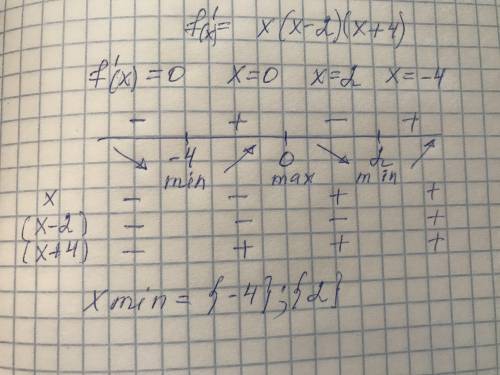 f'(x) = x(x-2)(x+4)
f'(x) = 0 x=0 x=2 x=-4
- + - +
-4 0 2
min max min
x - - + +
(x-2) - - - +
(x+4) - + + +
x min = {-4};{2}